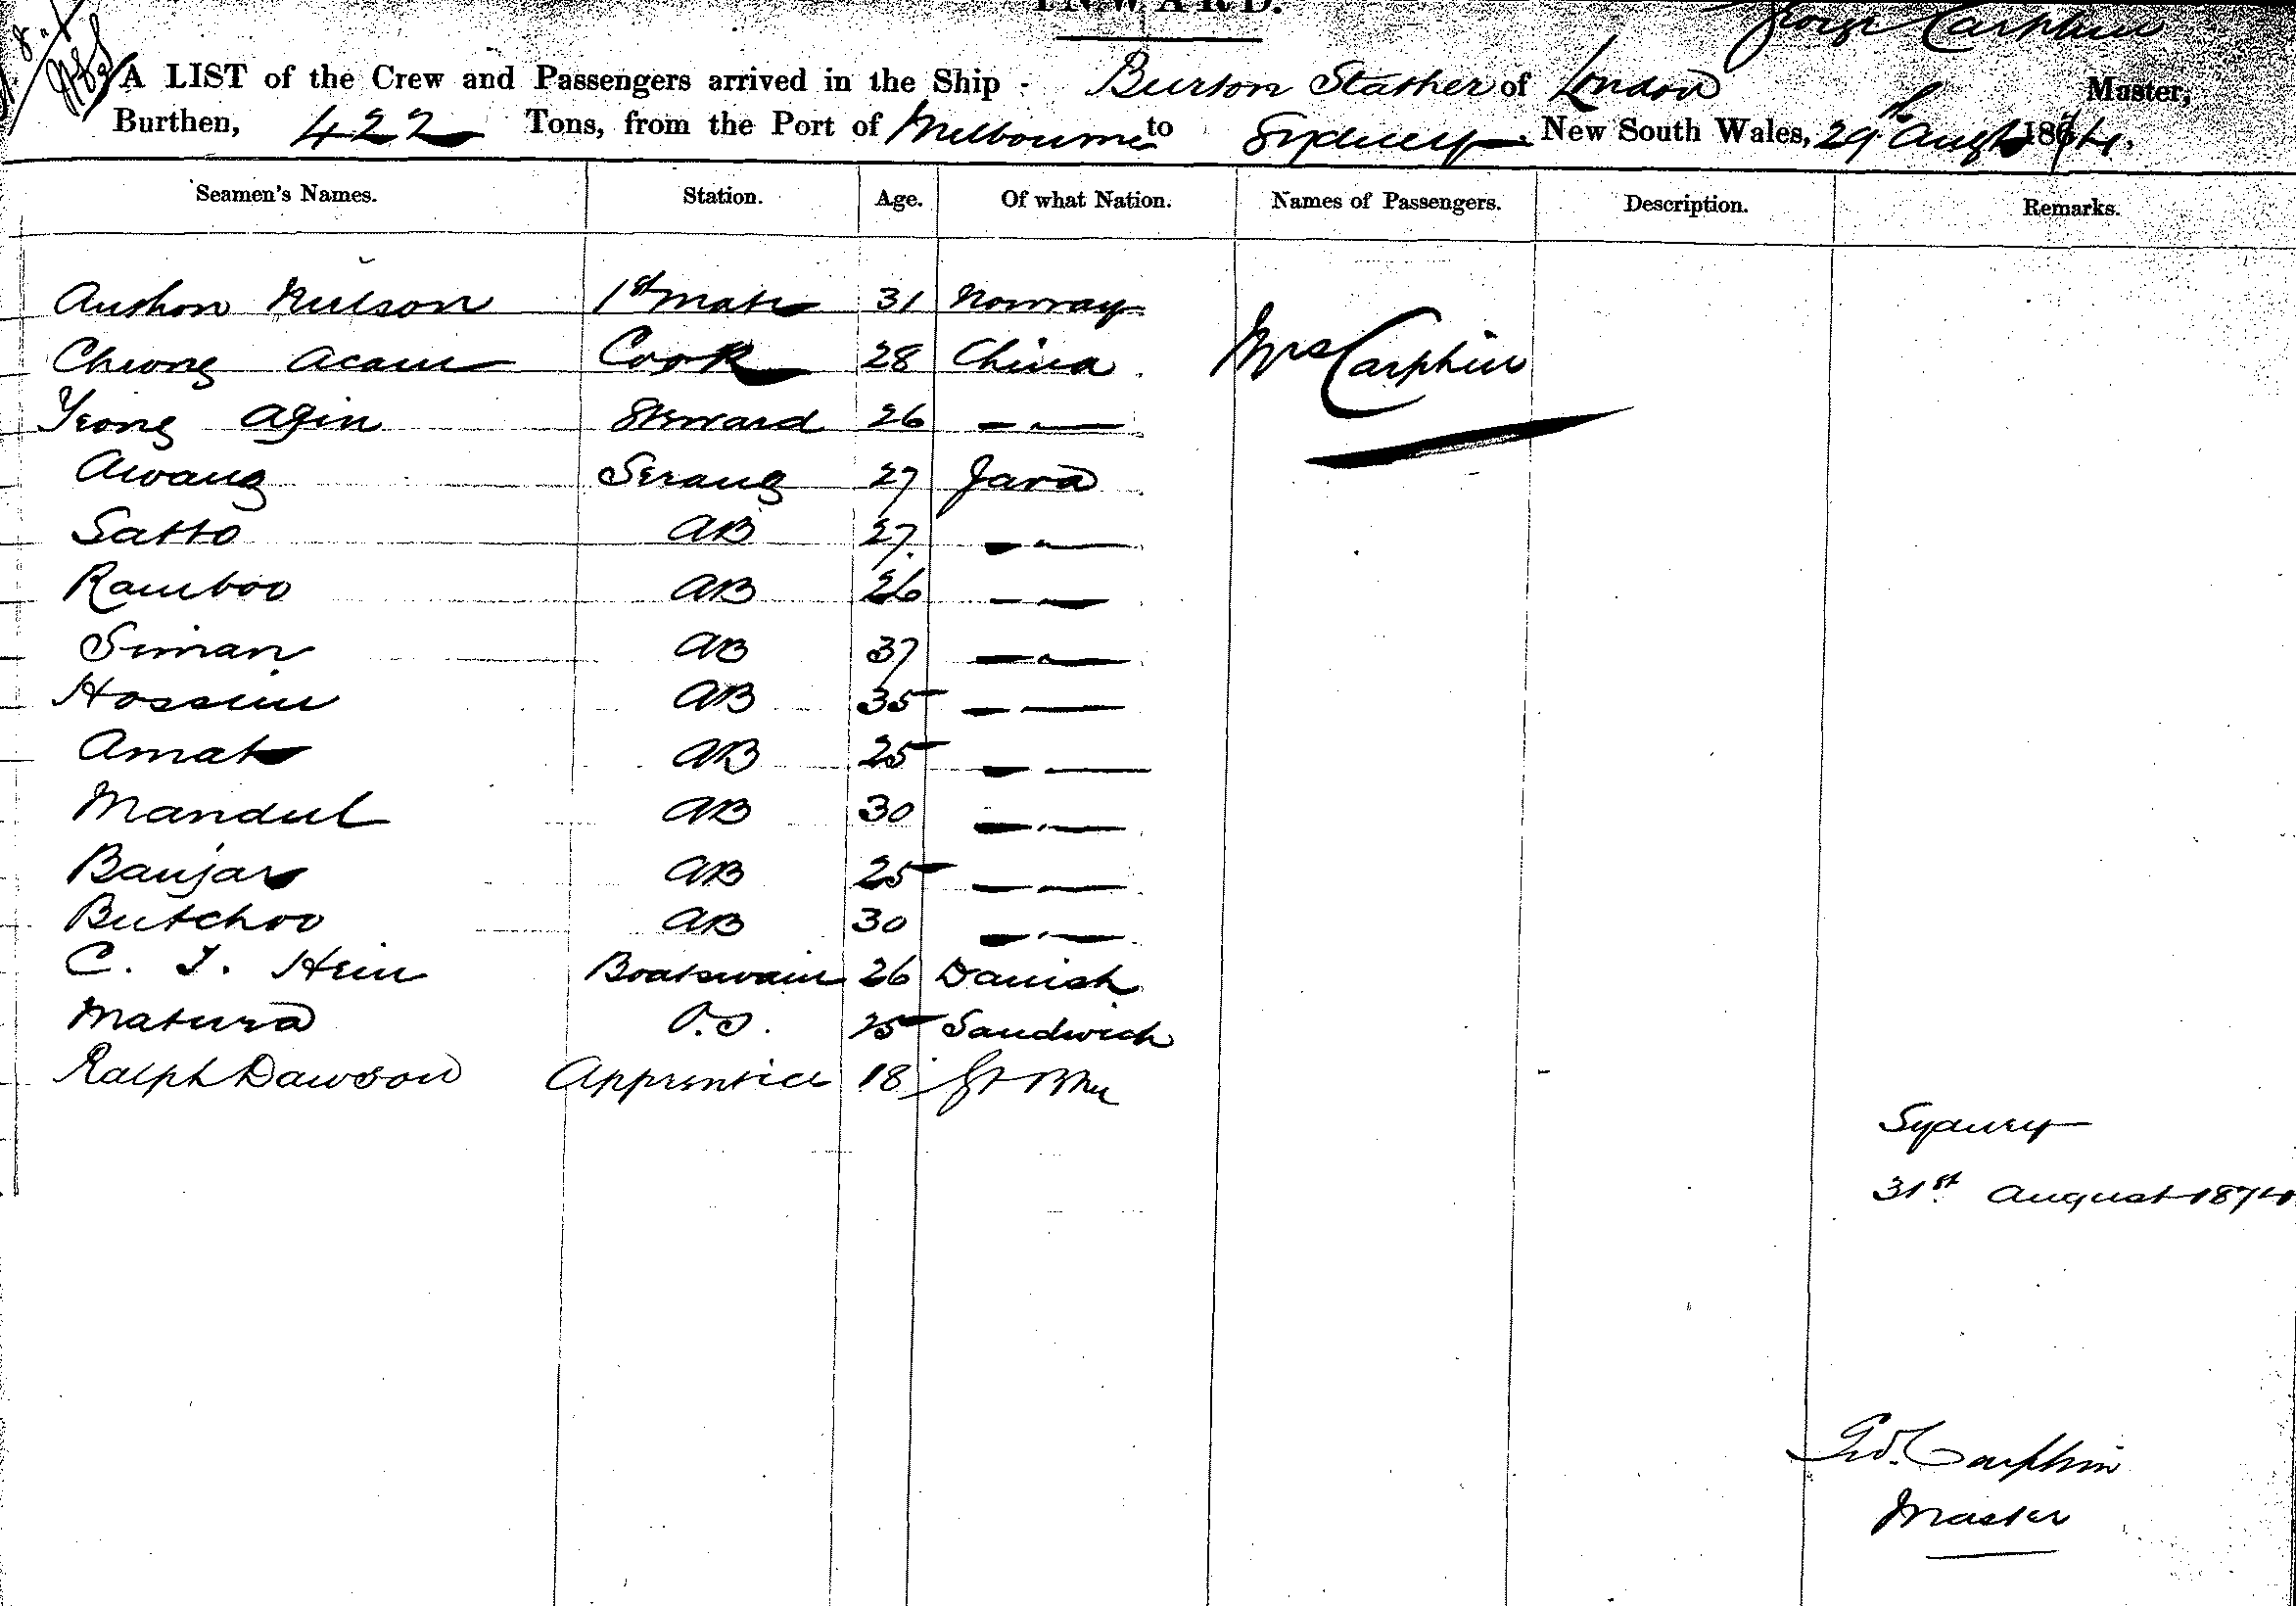 INWARD.
George Carphin
A LIST of the Crew and Passengers arrived in the Ship Burton Stather of London Master,
Burthen, 422 Tons, from the Port of Melbourne to Sydney New South Wales, 29th Augt 1874.
Seamen's Names. Station. Age. Of what Nation. Names of Passengers. Description. Remarks.
Anthon Neilson 1st mate 31 Norway
Cheong Acam Cook 28 China Mrs Carphin
Yeong Agin Steward 26 — —
Awang Serang 27 Java
Satto AB 27. — —
Ramboo AB 26 — —
Siman AB 37 — —
Hossein AB 35 — —
Amat AB 25 — —
Mandul AB 30 — —
Banjar AB 25 — —
Butchoo AB 30 — —
C. J. Hein Boatswain 26 Danish
Matura O.S. 25 Sandwich
Ralph Dawson Apprentice 18 Gt
Sydney
31st August 1874
Geo. Carphin
Master